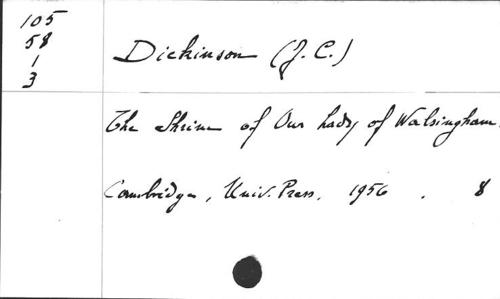 105
58
1
3
Dickinson (J. C.)
The Shrine of Our Lady of Walsingham.
Cambridge, Univ. Press, 1956 . 8